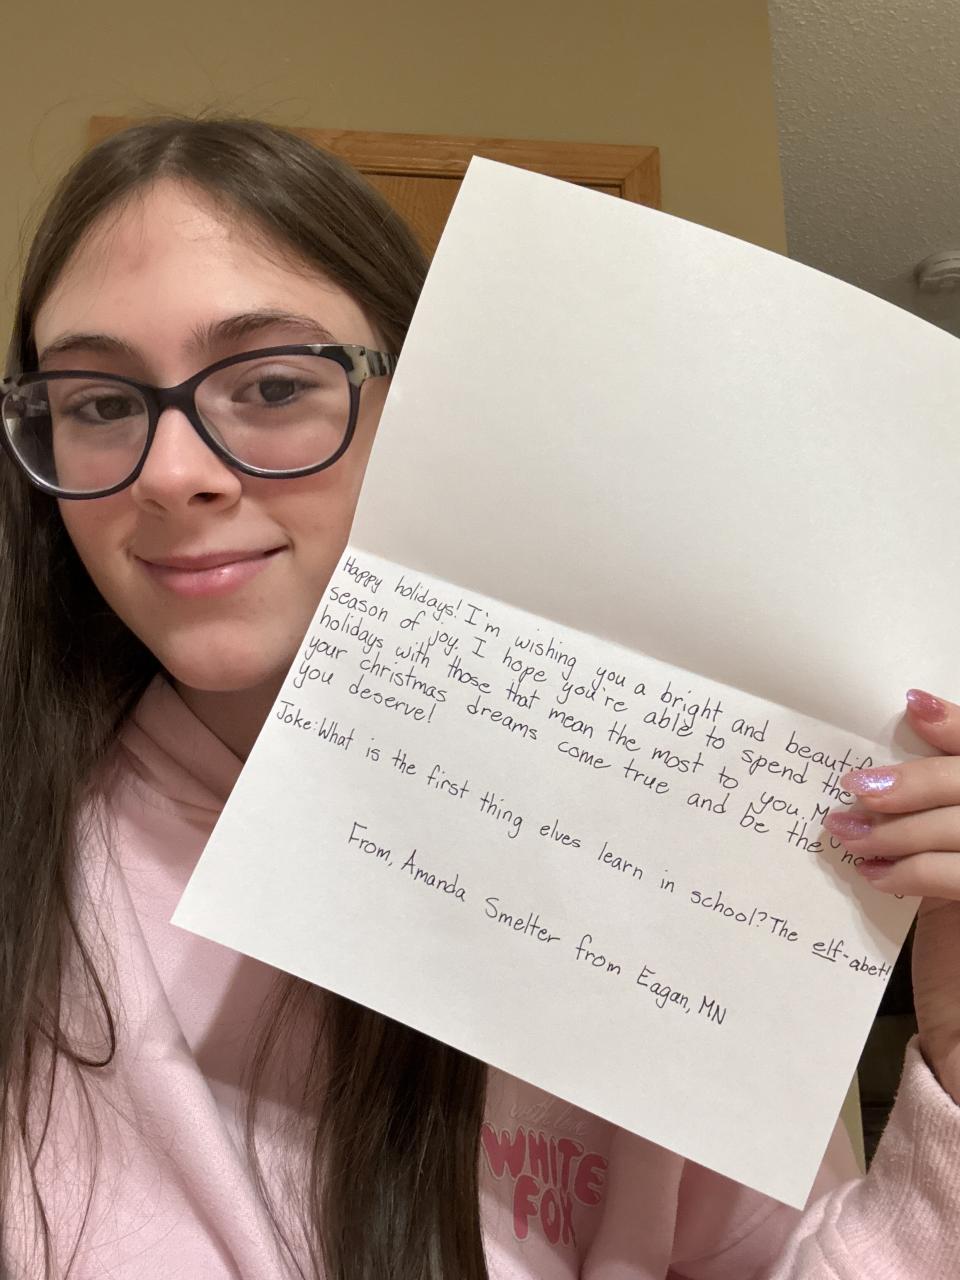 Happy holidays! I'm wishing you a bright and beautiful
season of joy. I hope you're able to spend the
holidays with those that mean the most to you.
your christmas dreams come true and be the
you deserve!
Joke: What is the first thing elves learn in school? The elf-abet!
From, Amanda Smelter from Eagan, MN
with love
WHITE
FOX